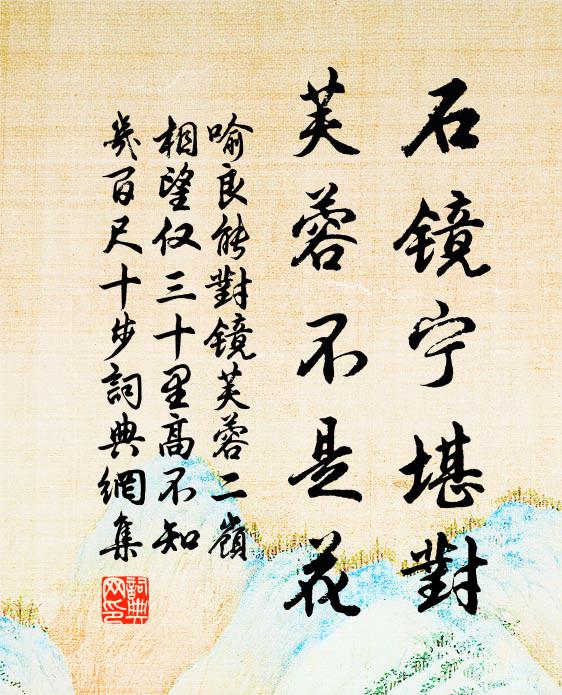 石镜宁堪對
芙蓉不是花
喻良能對镜芙蓉二嶺
相望仅三十里高不知
幾百尺十步詞典網集
詞典
网印